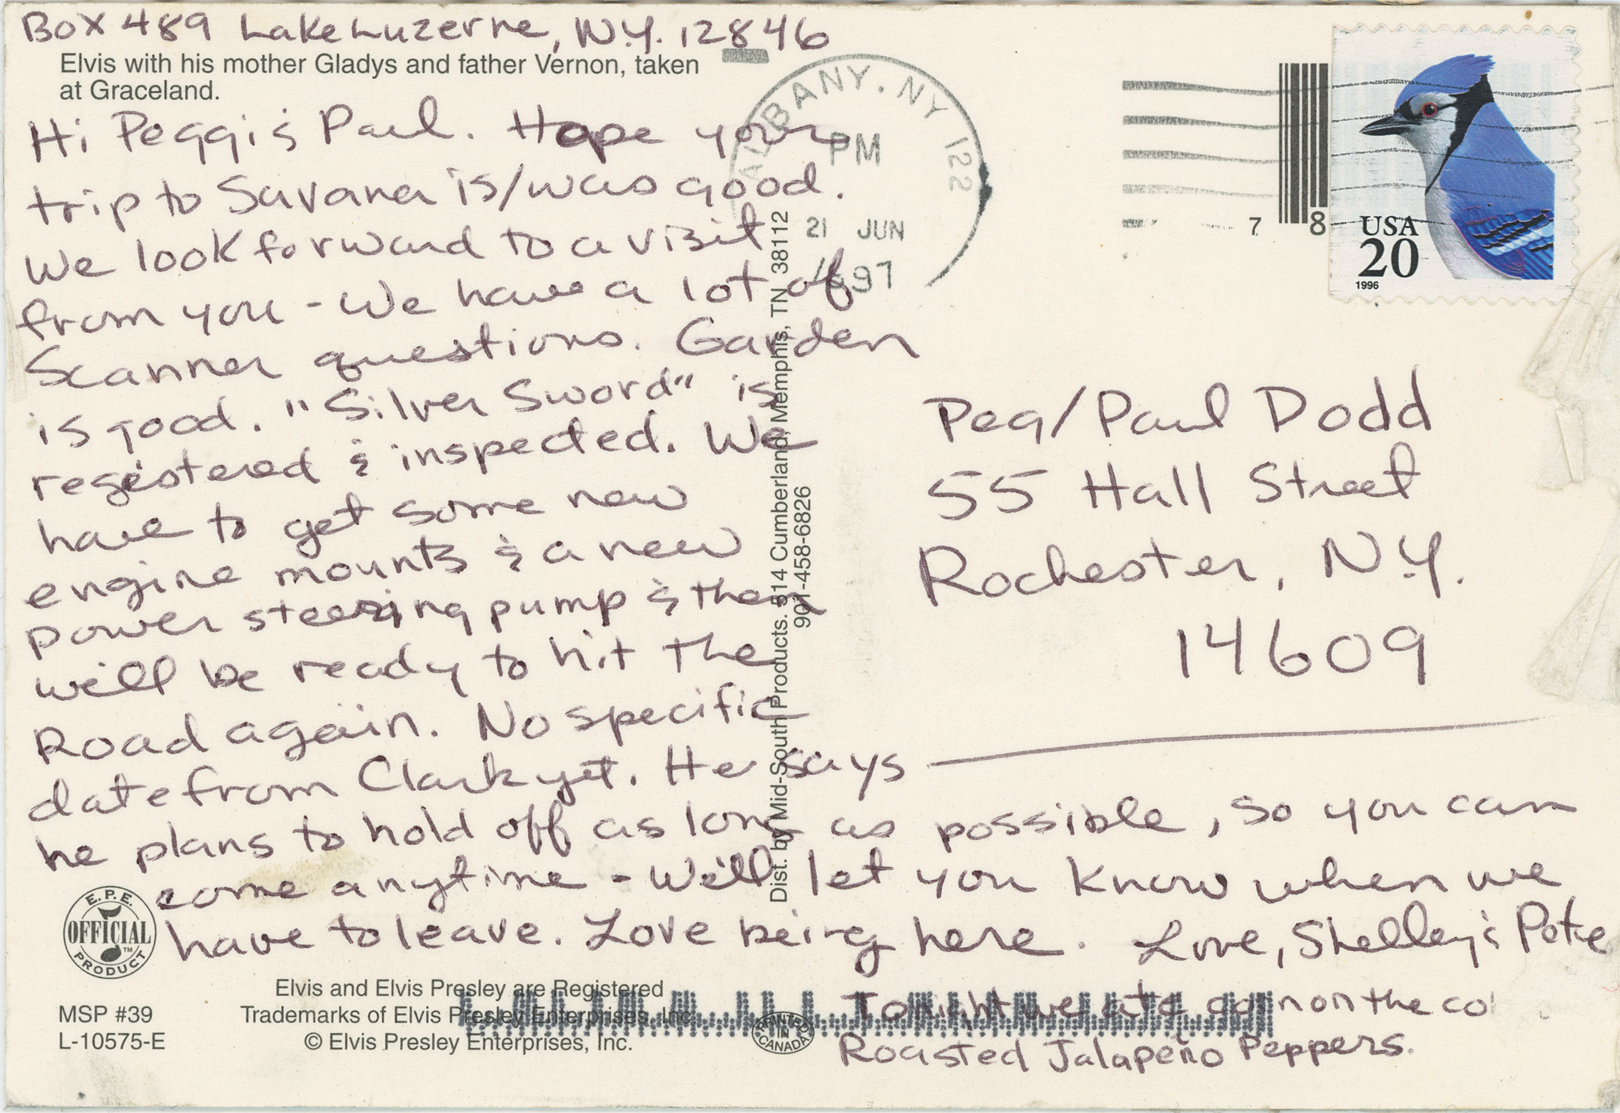 Box 489 Lake Luzerne, N.Y. 12846
Elvis with his mother Gladys and father Vernon, taken
at Graceland.
Hi Peggi & Paul. Hope your
trip to Savana is/was good.
We look forward to a visit
from you - We have a lot of
Scanner questions. Garden
is good. "Silver Sword" is
registered & inspected. We
have to get some new
engine mounts & a new
power steering pump & then
will be ready to hit the
Road again. No specific
date from Clark yet. He says
he plans to hold off as long as possible, so you can
come anytime - We'll let you know when we
have to leave. Love being here. Love, Shelley & Pete
Tonight we ate corn on the co
Roasted Jalapeño Peppers.
ALBANY, NY 122
PM
21 JUN
1997
7 8
USA
20
1996
Peg/Paul Dodd
55 Hall Street
Rochester, N.Y.
14609
Dist. by Mid-South Products. 514 Cumberland, Memphis, TN 38112
901-458-6826
E.P.E.
OFFICIAL
PRODUCT
TM
MSP #39
L-10575-E
Elvis and Elvis Presley are Registered
Trademarks of Elvis Presley Enterprises, Inc.
© Elvis Presley Enterprises, Inc.
IN
CANADA